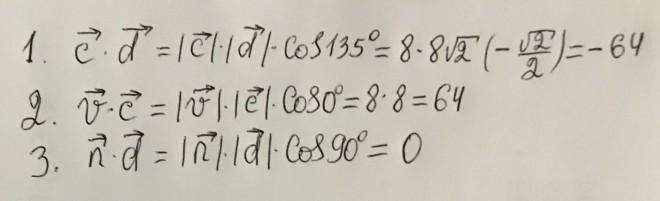 1. c⃗ · d⃗ = |c⃗|·|d⃗|·cos135° = 8·8√2 (-√2/2) = -64
2. v⃗·c⃗ = |v⃗|·|c⃗|·cos0° = 8·8 = 64
3. n⃗·d⃗ = |n⃗|·|d⃗|·cos90° = 0